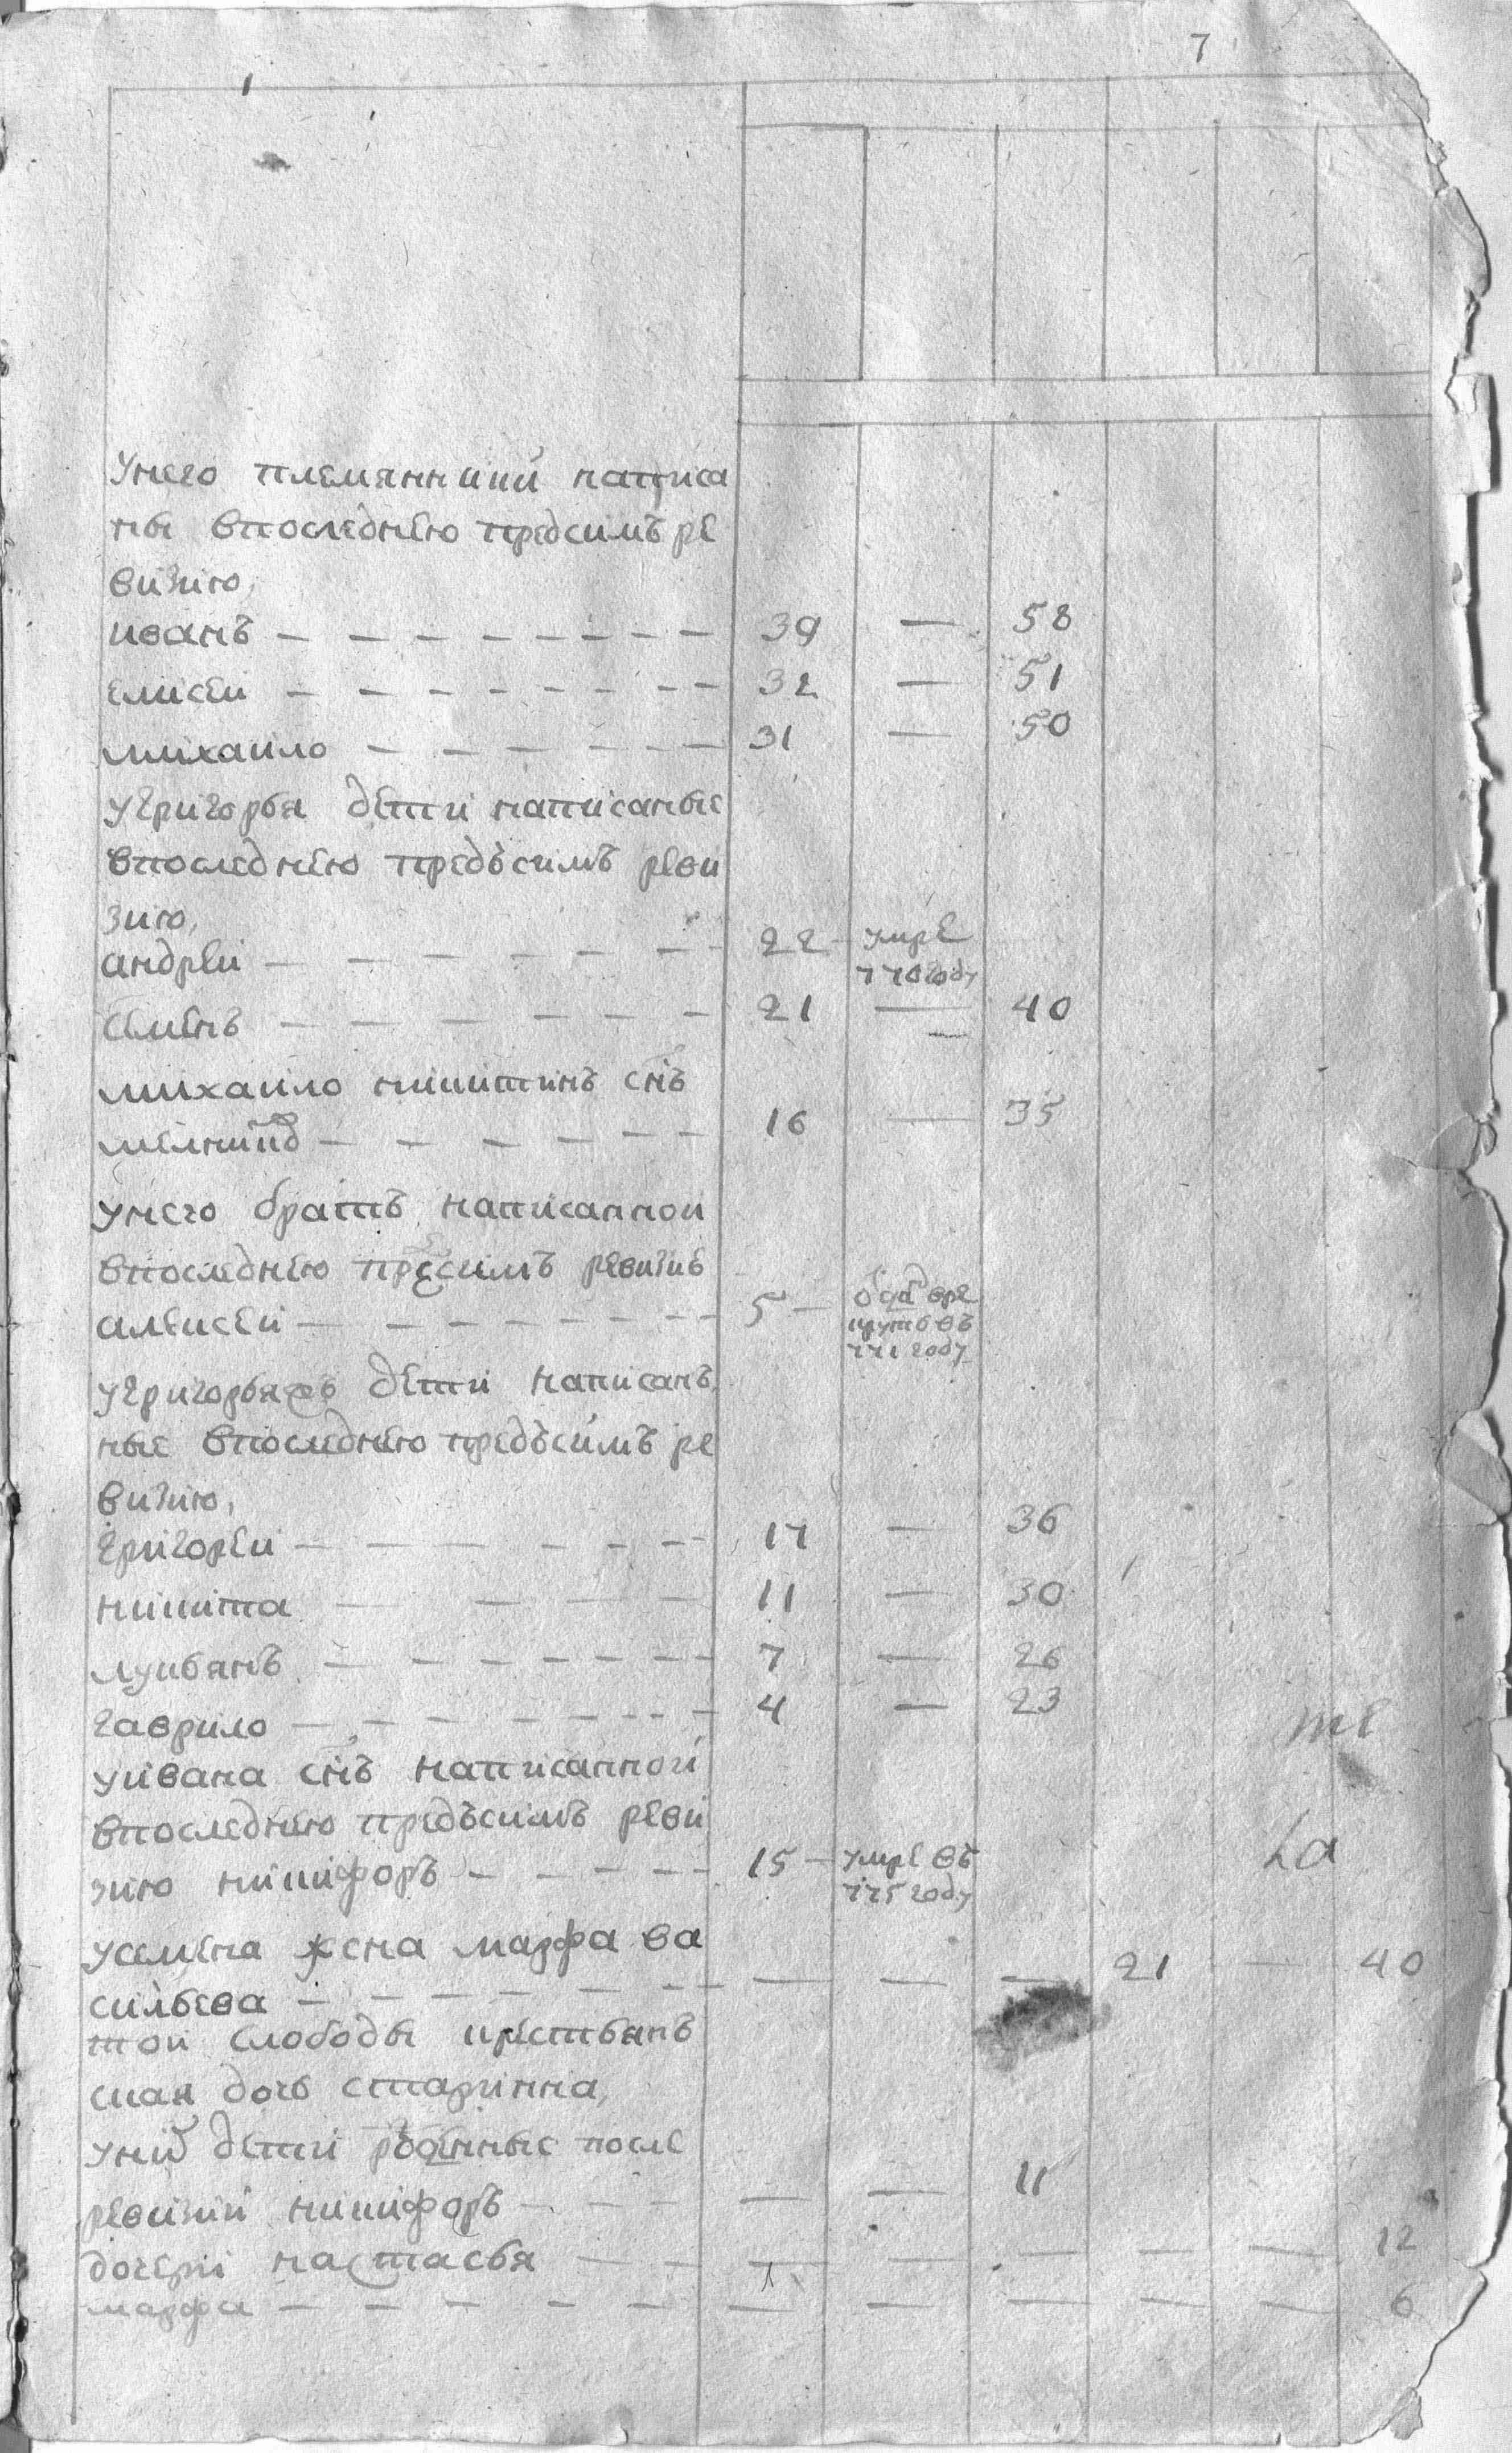 7
унего племянники написа
ны впоследнею предсимъ ре
визию,
иванъ — — — — — — — 39 — 58
елисеи — — — — — — — 32 — 51
михаило — — — — — — 31 — 50
угригорья дети написаные
впоследнею предъсимъ реви
зию,
андреи — — — — — — — 22 умре
770году
семенъ — — — — — — 21 — 40
михаило никитинъ снъ
— — — — — — 16 — 35
унего братъ написаннои
впоследнею пресимъ ревизию
алексеи — — — — — — — 5 — рекрутъ въ
771 году
дети написанъ
ные впоследнею предъсимъ ре
визию,
григореи — — — — — — 17 — 36
никита — — — — 11 — 30
лукьянъ — — — — — — 7 — 26
гаврило — — — — — — — 4 — 23
уивана снъ написанной
впоследнею предъсимъ реви
зию никифоръ — — — — 15 — умре въ
775 году
усемена жена марфа ва
сильева — — — — — — — — — 21 — 40
тои слободы крестьянъ
ская дочь старинна,
уних дети рожденные после
ревизии никифоръ — — — — — 11
дочери настасья — — — — — — — 12
марфа — — — — — — — — — — 6